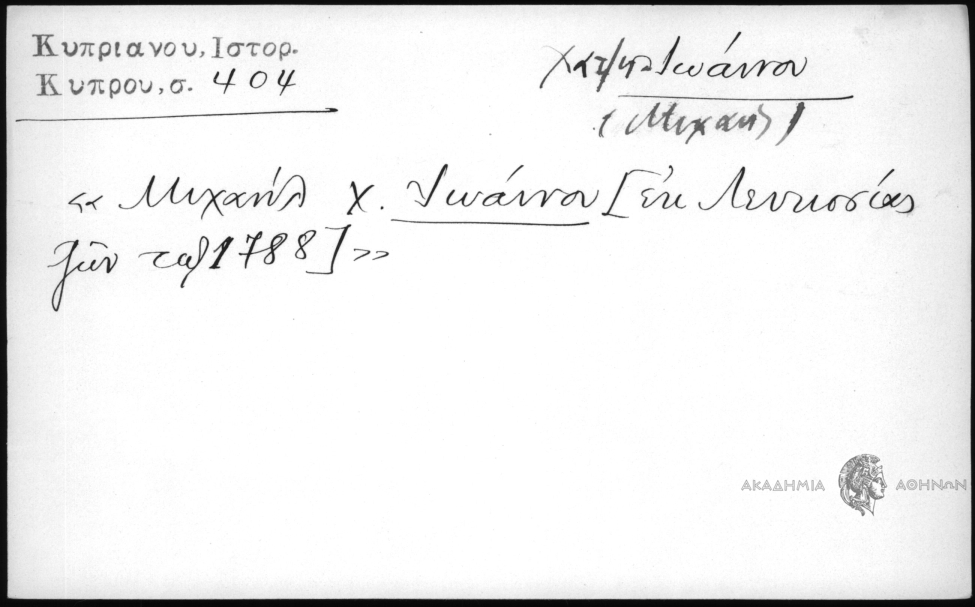 Κυπριανου, Ιστορ.
Κυπρου, σ. 404
Χατζη-Ιωάννου
(Μιχαήλ)
«Μιχαήλ Χ. Ἰωάννου [ἐκ Λευκωσίας
ζῶν τῷ 1788]»
ΑΚΑΔΗΜΙΑ ΑΘΗΝΩΝ